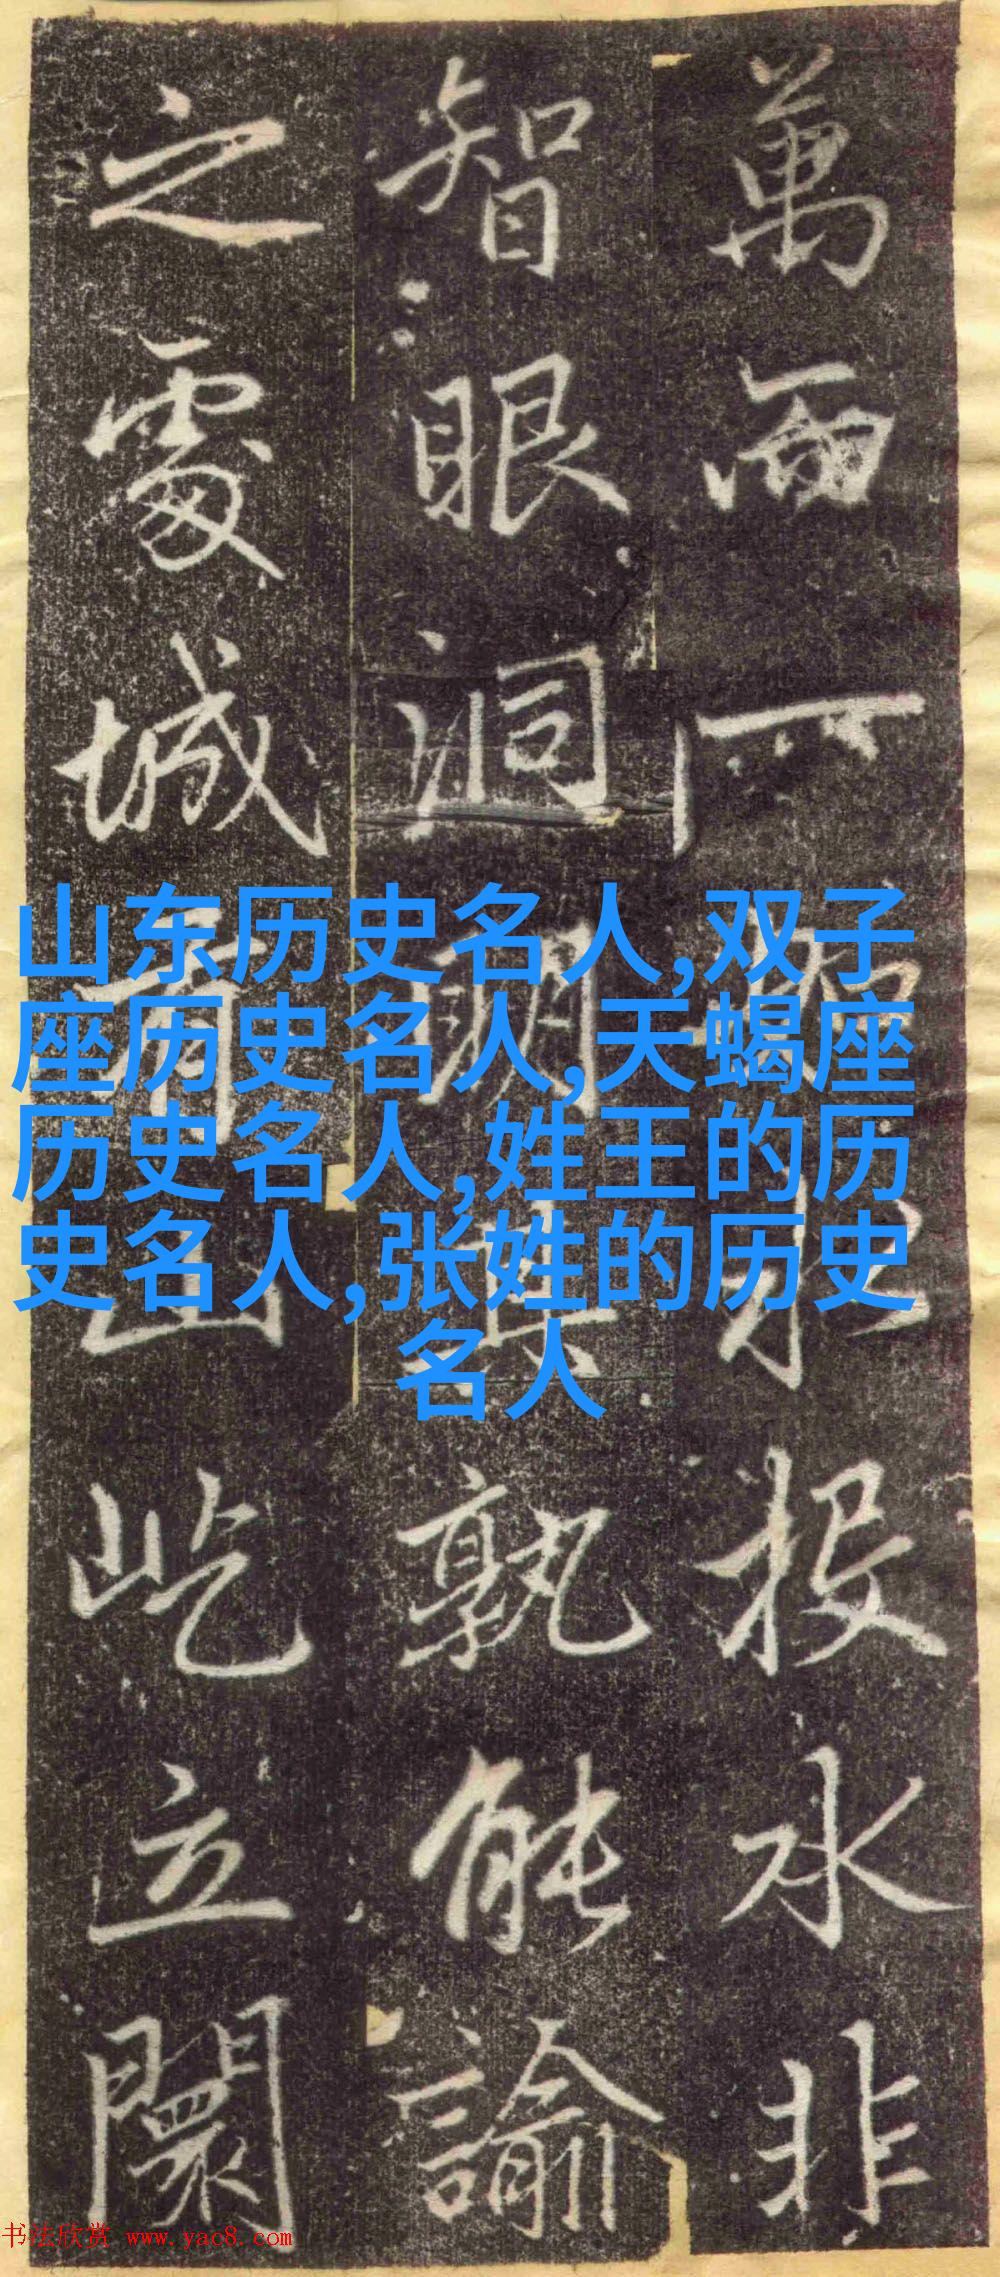 萬一投水非
智眼洞孰能諭
之處城山屹立闤
山东历史名人,双子
座历史名人,天蝎座
历史名人,姓王的历
史名人,张姓的历史
名人
书法欣赏 www.yac8.com